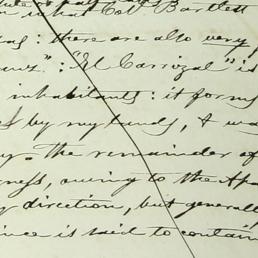 in what Col. Bartlett
: there are also very
" : "El Carrizal" is
inhabitants : it forms
by my lands, & wa
The remainder of
ness, owing to the Apa
direction, but generall
ince is said to contain